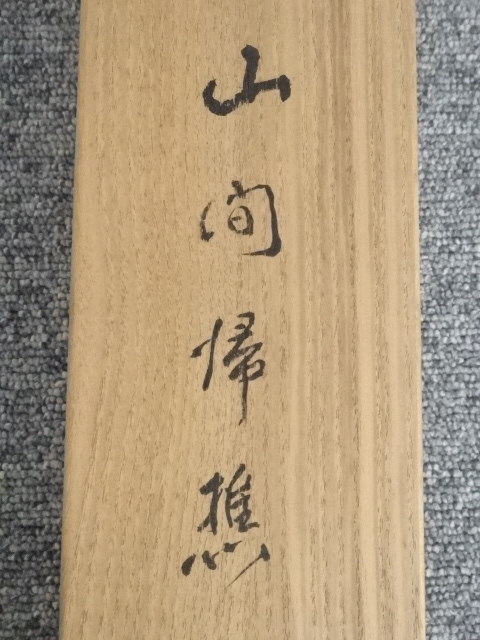 山間帰樵